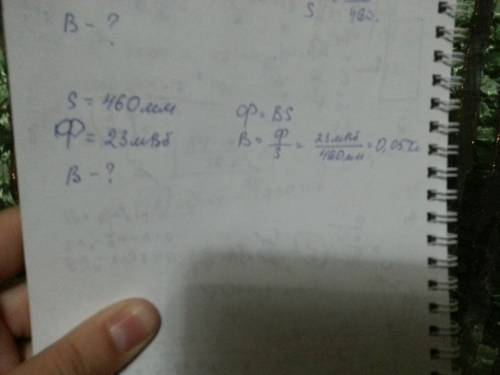 S
48
B - ?
S = 460 мм
Ф = 23 мВб
B - ?
Ф = BS
B = Ф/S = 23мВб/460мм = 0,05Тл